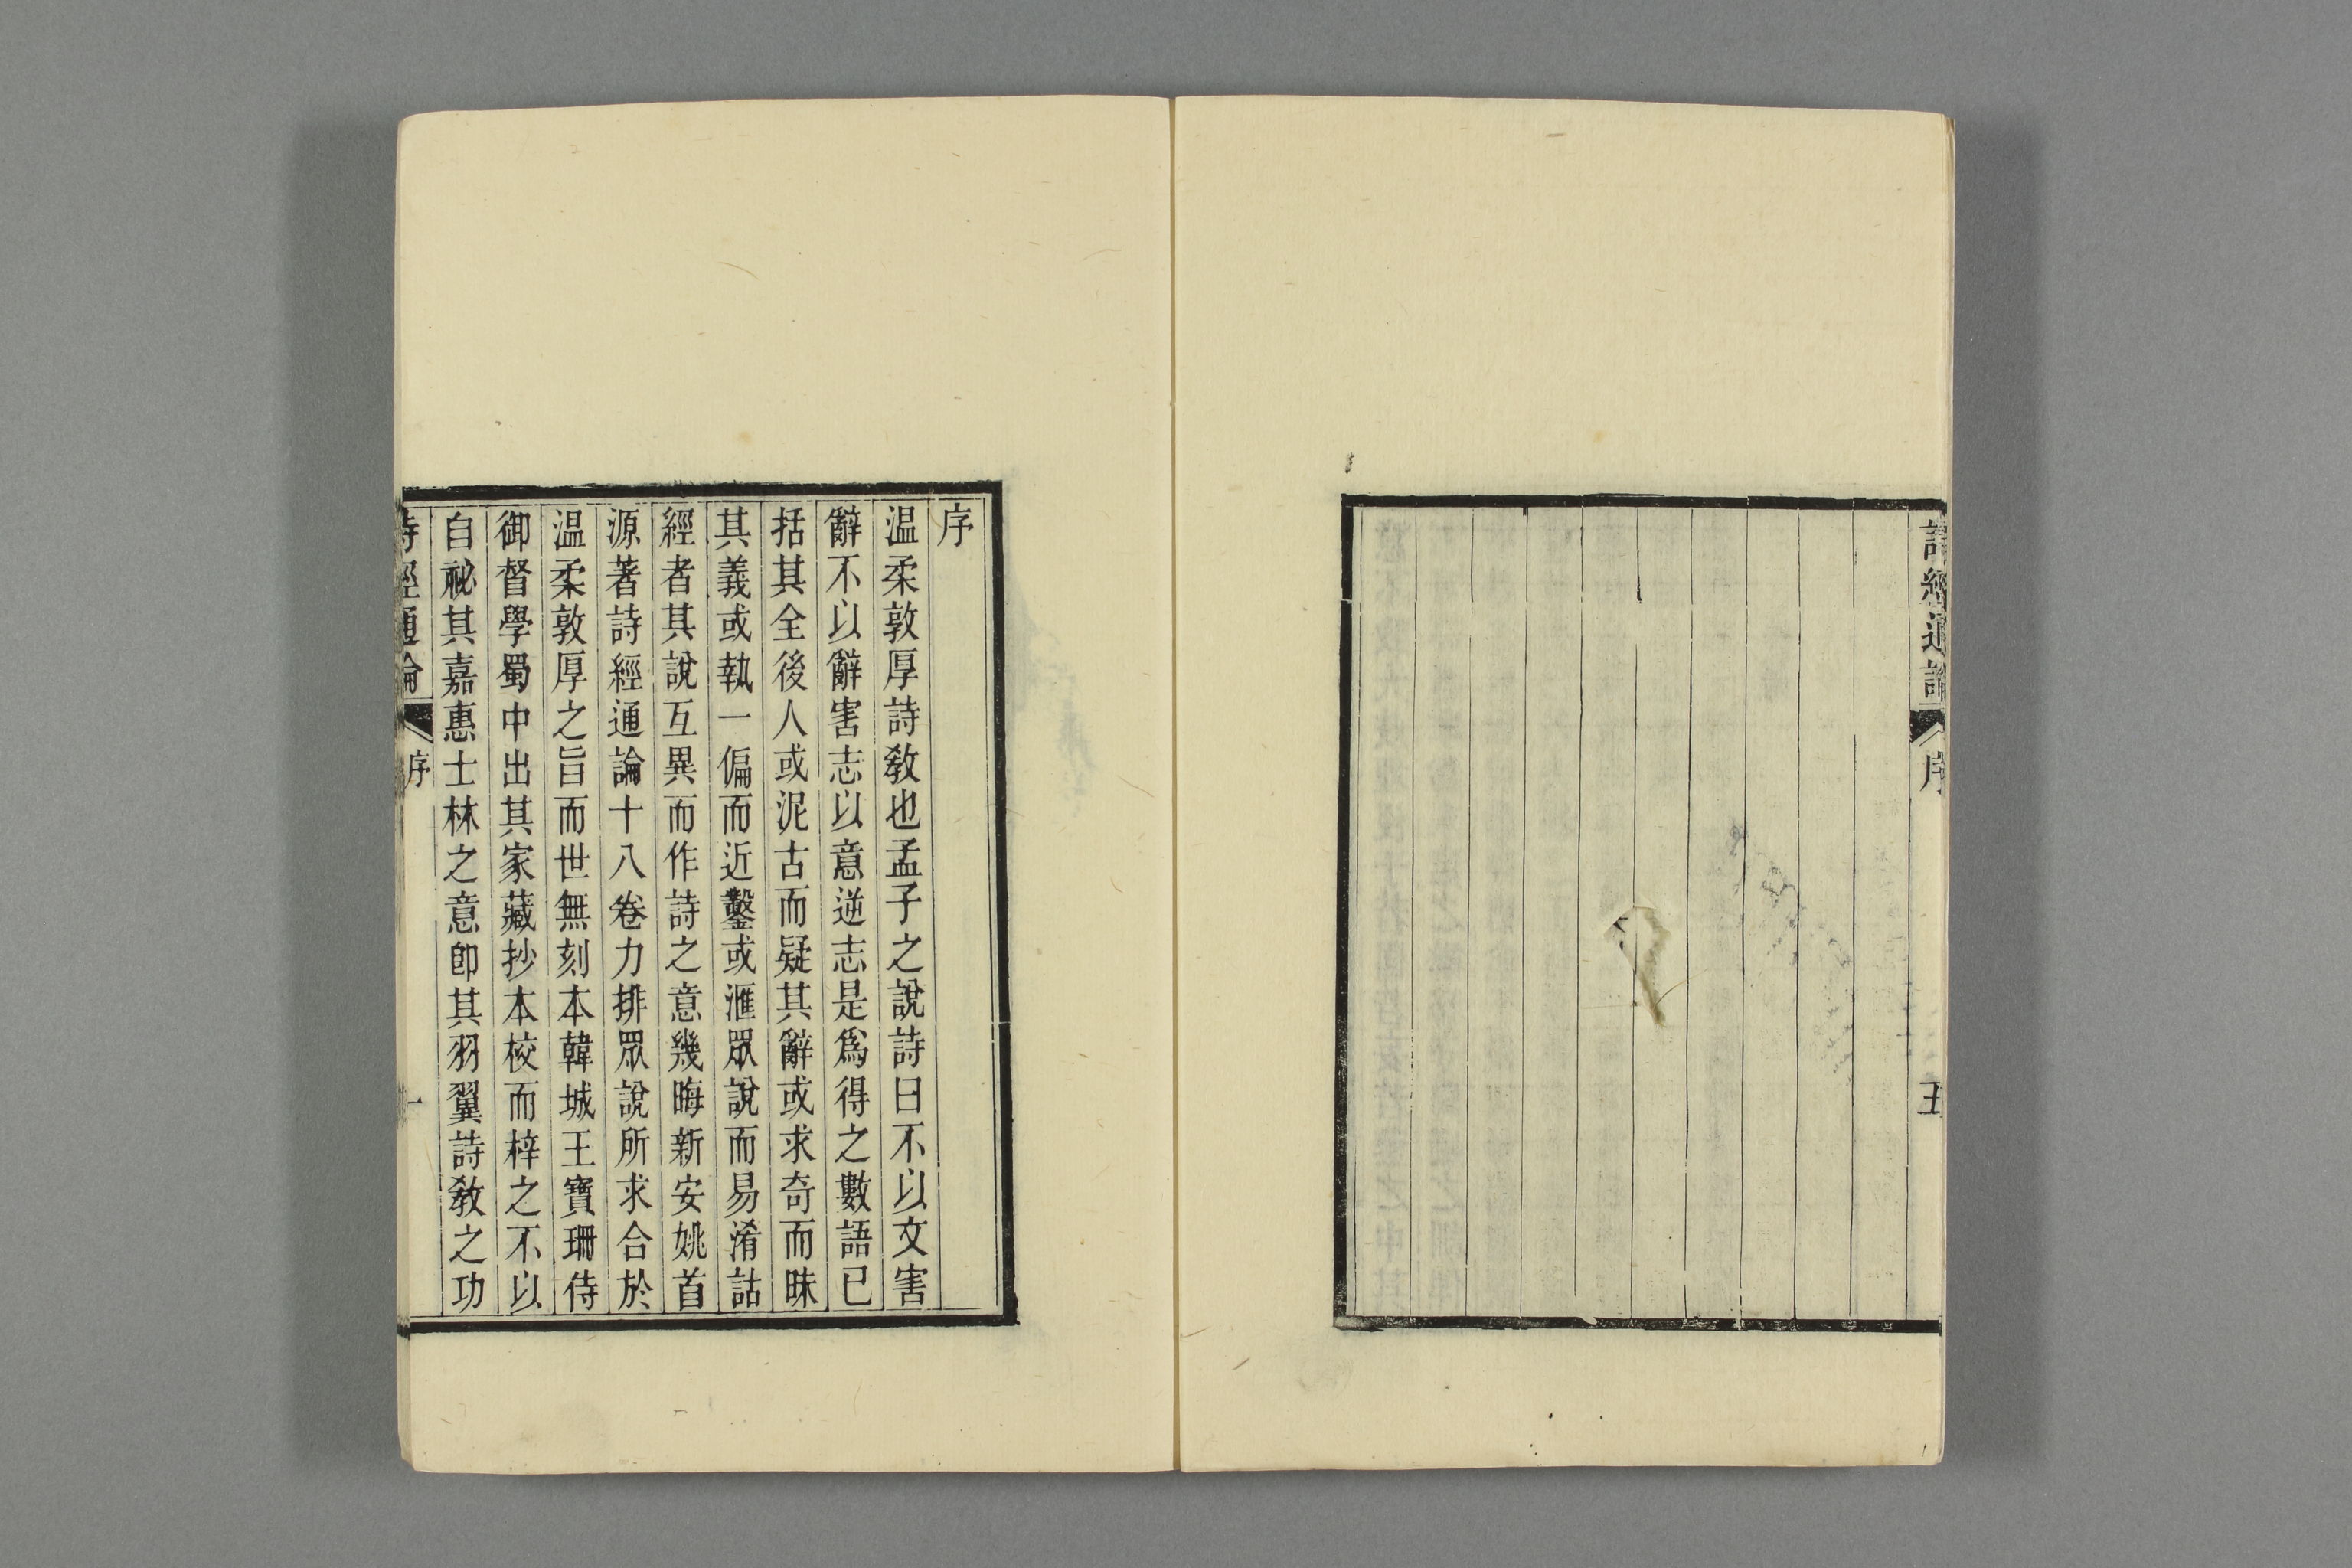 詩經通論
序
五
序
温柔敦厚詩敎也孟子之說詩曰不以文害
辭不以辭害志以意逆志是爲得之數語已
括其全後人或泥古而疑其辭或求奇而昧
其義或執一偏而近鑿或滙眾說而易淆詁
經者其說互異而作詩之意幾晦新安姚首
源著詩經通論十八卷力排眾說所求合於
温柔敦厚之旨而世無刻本韓城王寶珊侍
御督學蜀中出其家藏抄本校而梓之不以
自祕其嘉惠士林之意卽其羽翼詩敎之功
詩經通論
序
一